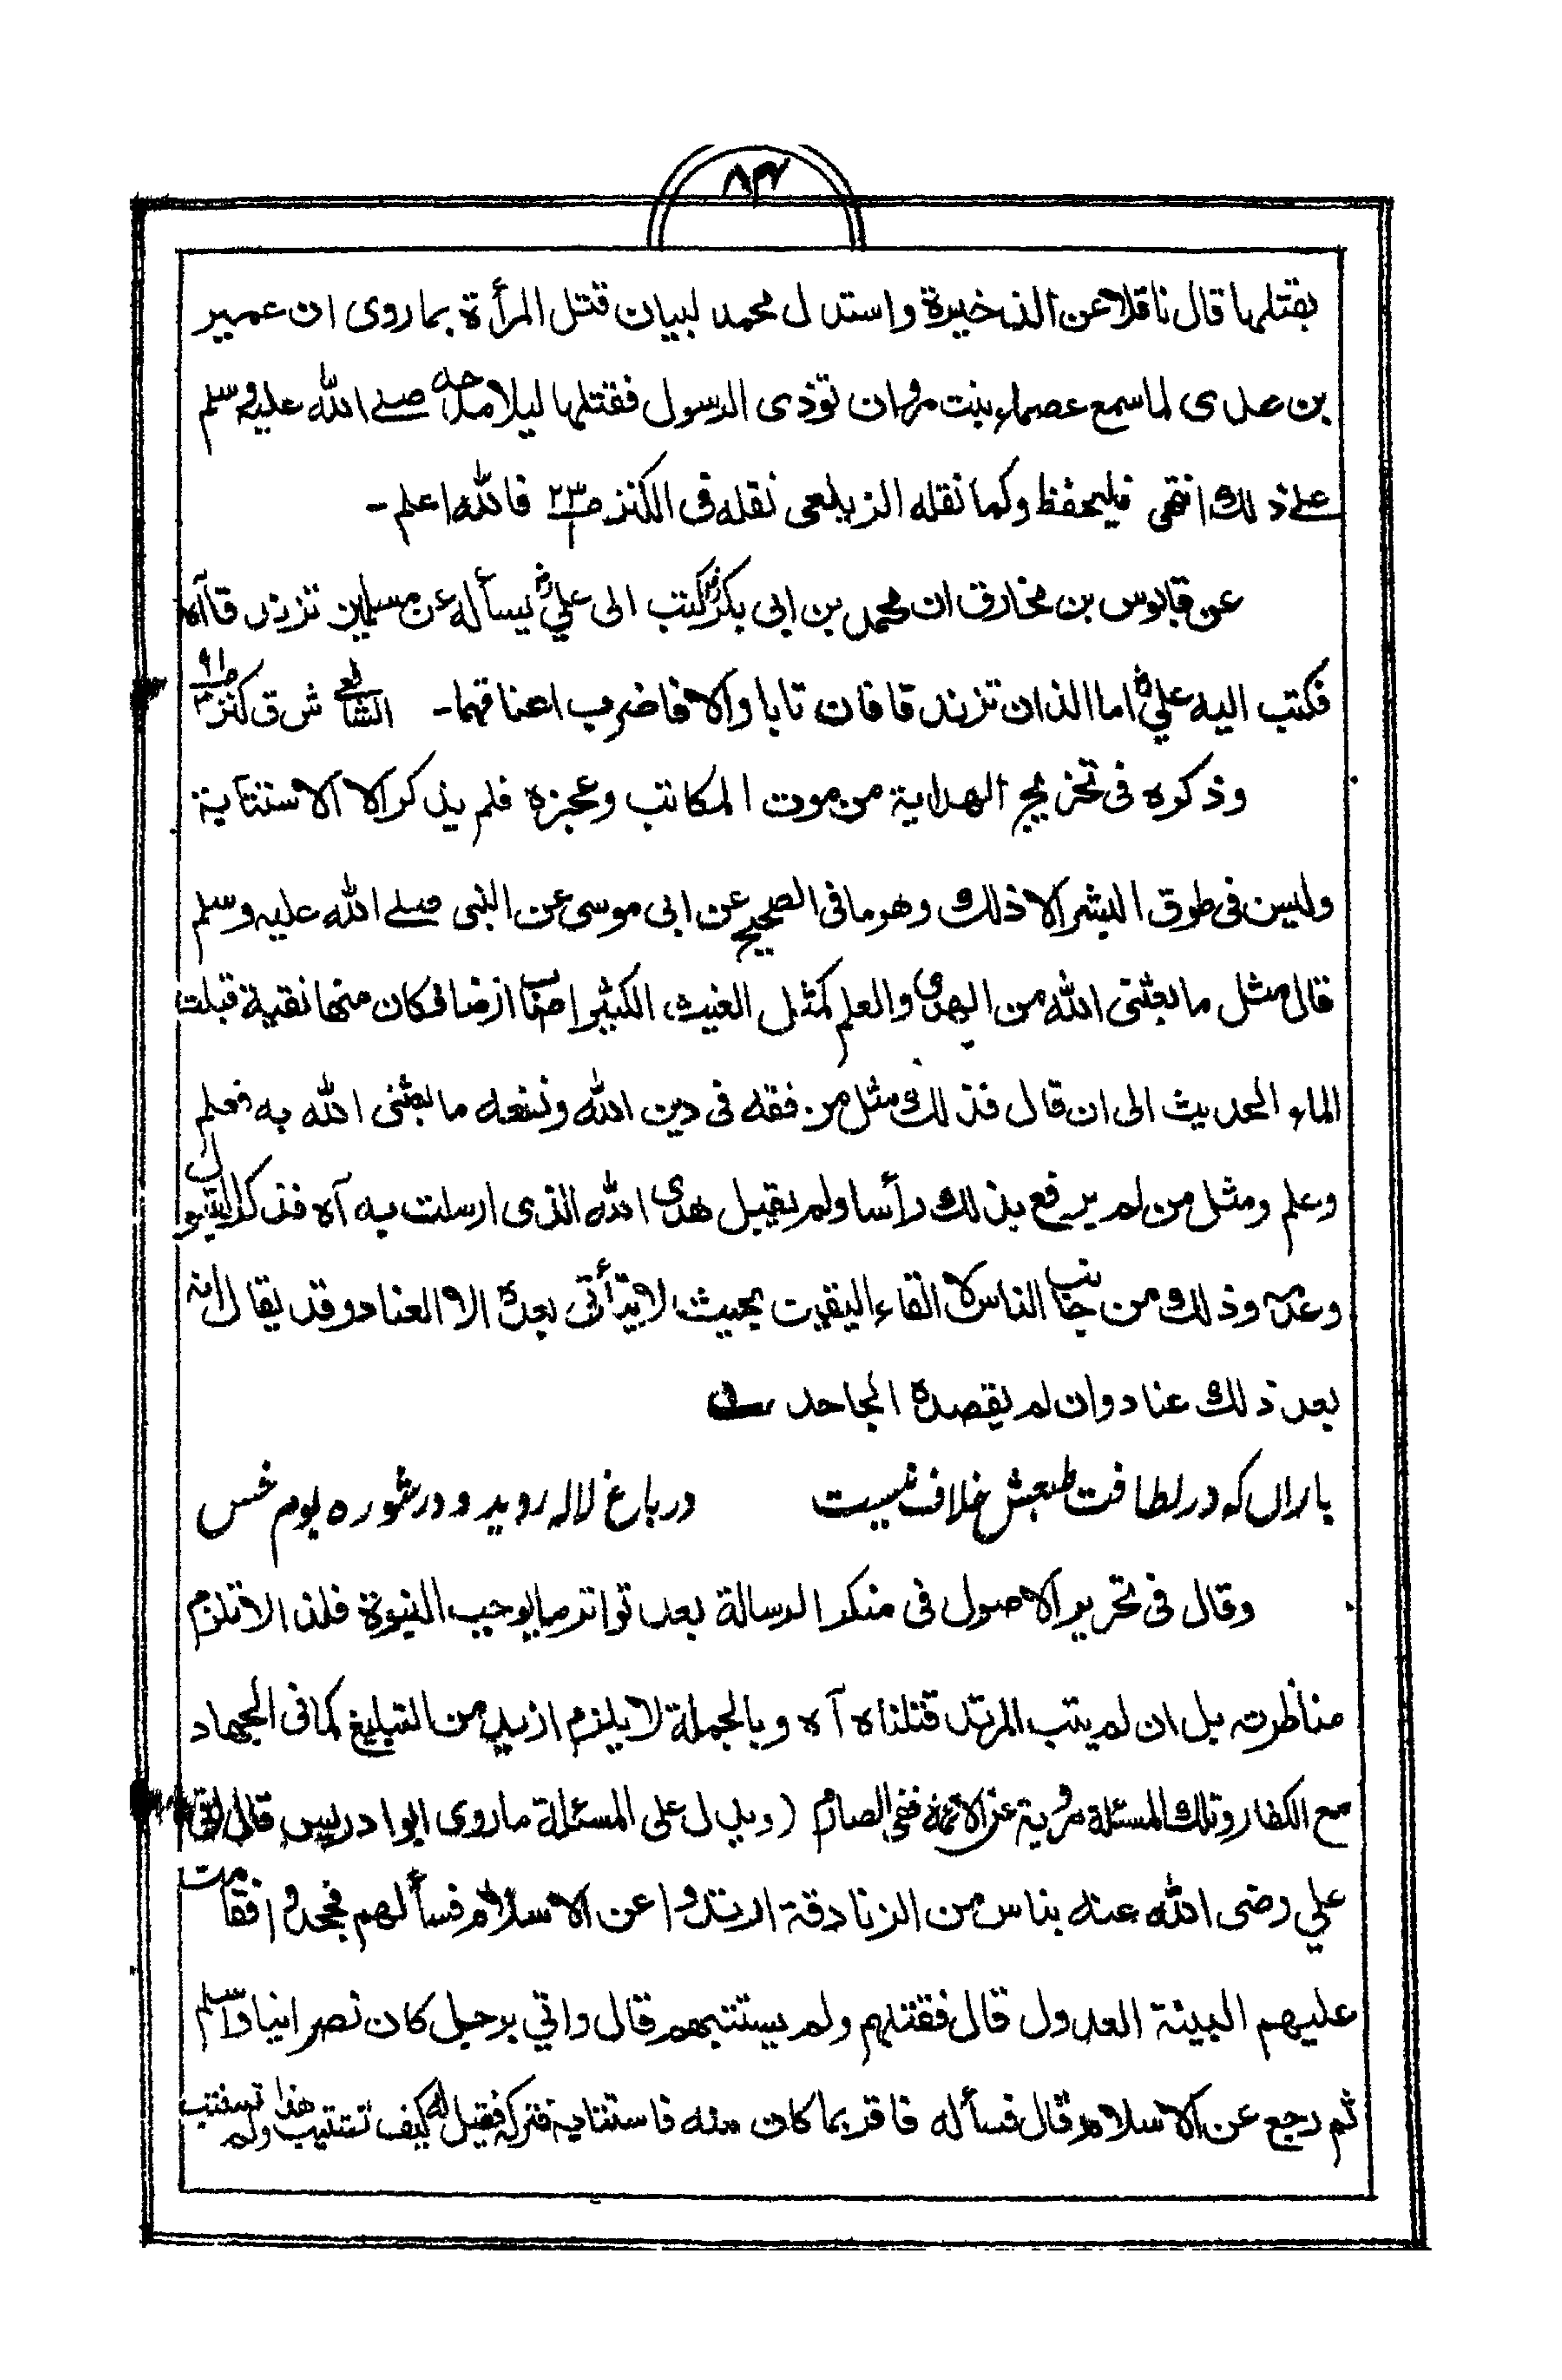 ۸۴
بقتلها قال ناقلا عن الذخيرة واستدل محمد لبيان قتل المرأة بما روى ان عمير
بن عدى لما سمع عصماء بنت مروان تؤذى الرسول فقتلها ليلا مدحه صلے الله عليه وسلم
علے ذلك انتهى فليحفظ وكما نقله الزيلعى نقله فى الكنز ص فالله اعلم -
عن قابوس بن مخارق ان محمد بن ابى بكر كتب الى علي يسأله عن مسلمين تزندقا آه
فكتب اليه علي اما اللذان تزندقا فان تابا والا فاضرب اعناقهما - الشافعے ش ق كنز
وذكره فى تخريج الهداية من موت المكاتب وعجزه فلم يذكر الا الاستتابة
وليس فى طوق البشر الا ذلك وهو ما فى الصحيح عن ابى موسى عن النبى صلے الله عليه وسلم
قال مثل ما بعثنى الله من الهدى والعلم كمثل الغيث الكثير اصاب ارضا فكان منها نقية قبلت
الماء الحديث الى ان قال فذلك مثل من فقه فى دين الله ونفعه ما بعثنى الله به فعلم
وعلم ومثل من لم يرفع بذلك رأسا ولم يقبل هدى الله الذى ارسلت به آه فذكر القبول
وعدمه وذلك من جانب الناس لا القاء اليقين بحيث لا يتأتى بعده الا العناد وقد يقال انه
بعد ذلك عناد وان لم يقصده الجاحد
باراں كه در لطافت طبعش خلاف نيست در باغ لاله رويد و در شوره بوم خس
وقال فى تحرير الاصول فى منكر الرسالة بعد تواتر ما يوجب النبوة فلذا لا تلزم
مناظرته بل ان لم يتب المرتد قتلناه آه وبالجملة لا يلزم ازيد من التبليغ كما فى الجهاد
مع الكفار وتلك المسئلة مروية عن الائمة ففى الصارم (ويدل على المسئلة ما روى ابو ادريس قال اتى
علي رضى الله عنه بناس من الزنادقة ارتدوا عن الاسلام فسألهم فجحدوا فقامت
عليهم البينة العدول قال فقتلهم ولم يستتبهم قال واتي برجل كان نصرانيا واسلم
ثم رجع عن الاسلام قال فسأله فاقر بما كان منه فاستتابه فتركه فقيل له كيف تستتيب هذا ولم تستتب